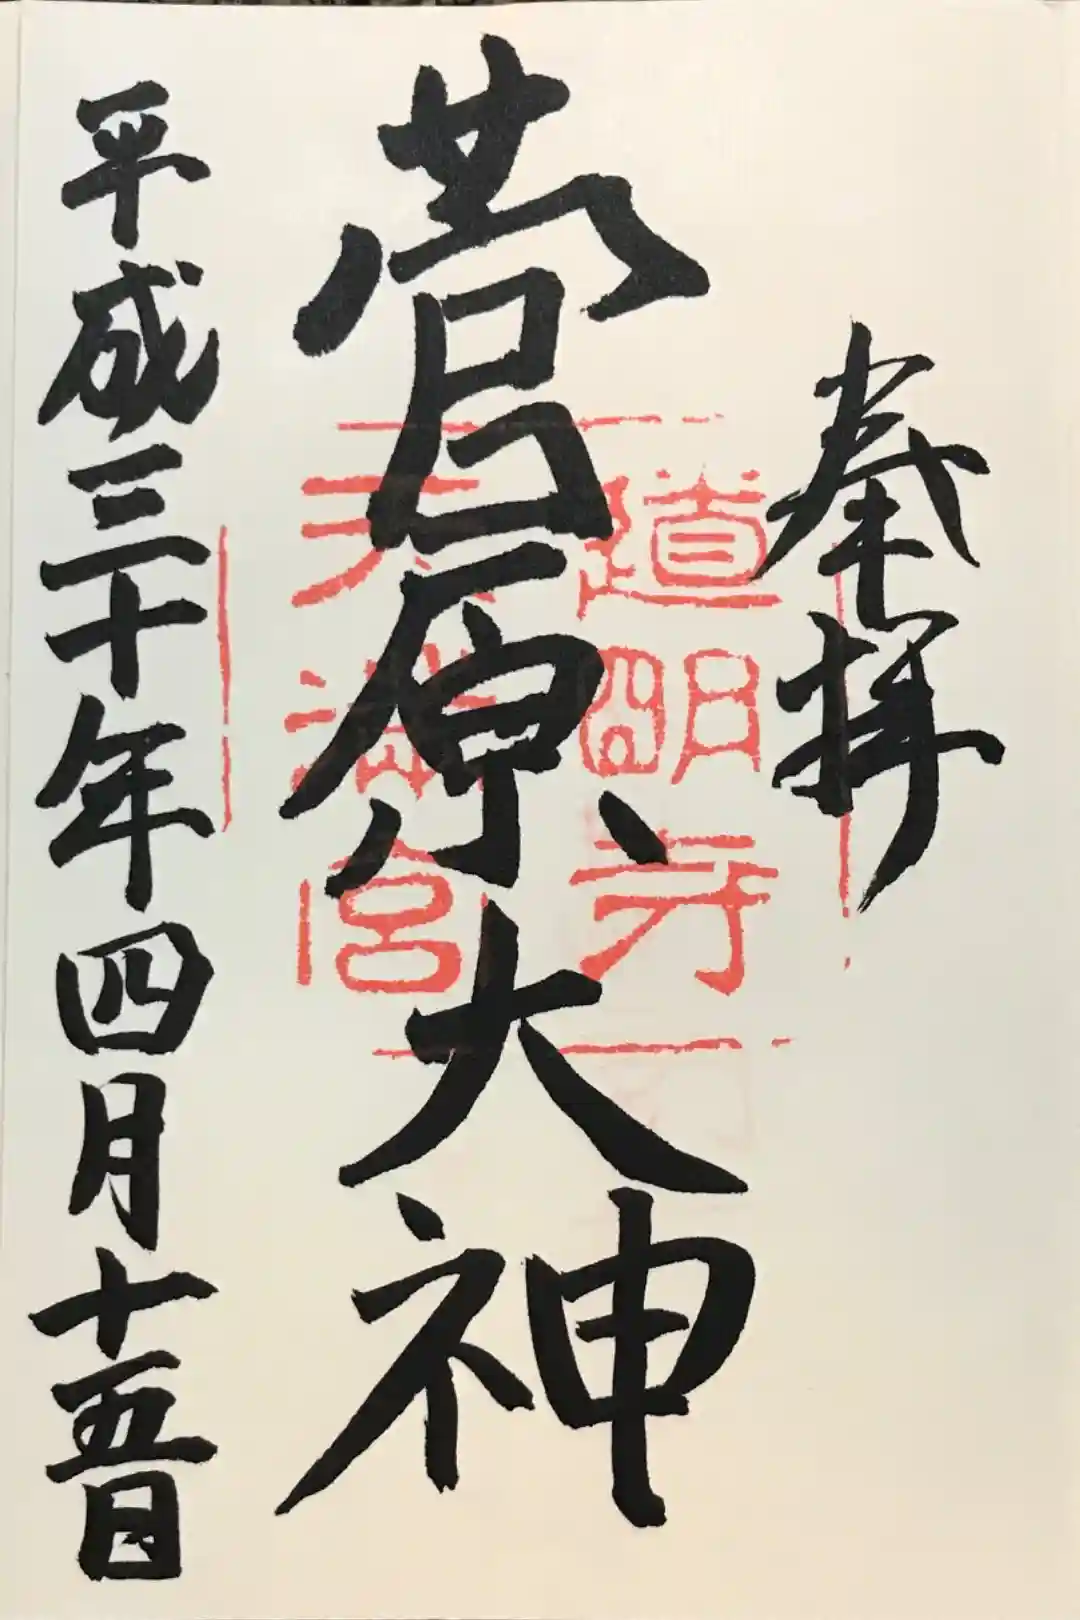 奉拝
菅原大神
平成三十年四月十五日
道明寺
天満宮